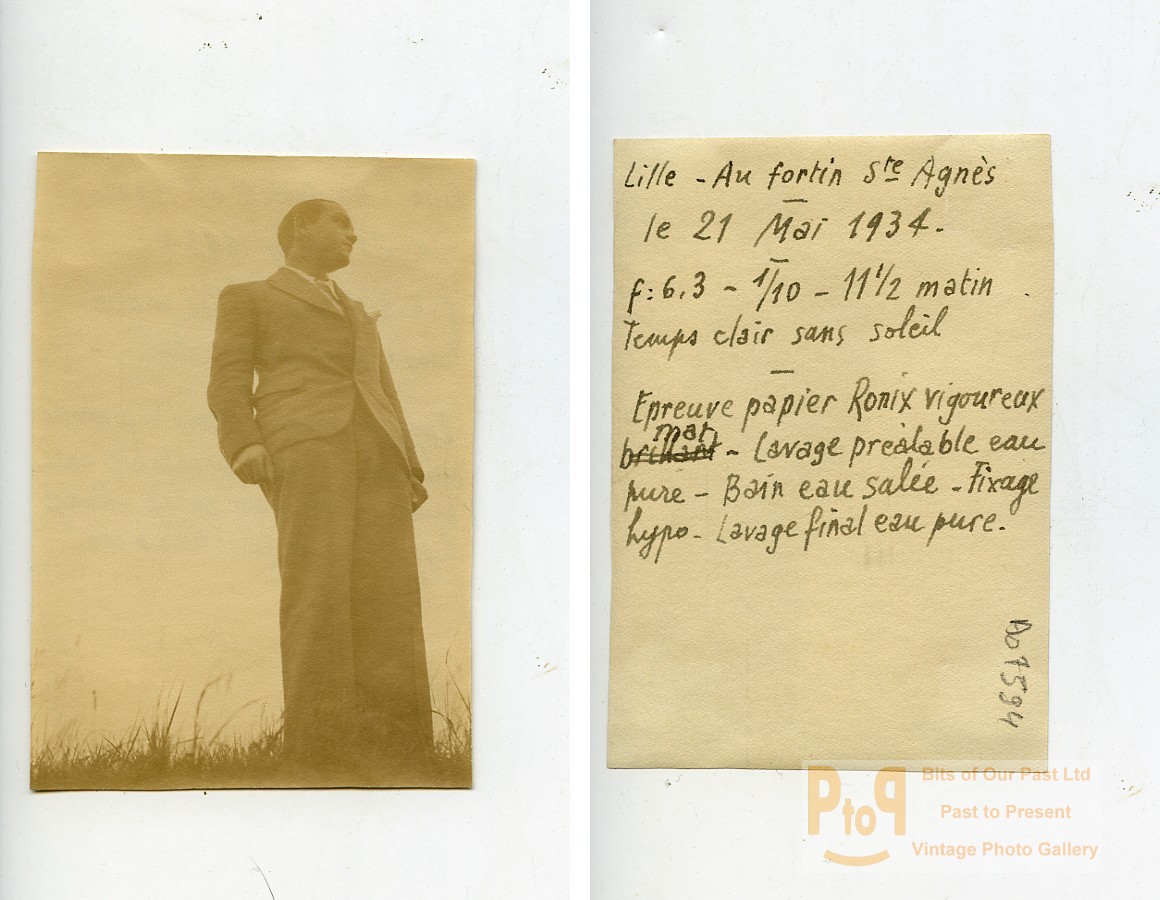 Lille - Au fortin Ste Agnès
le 21 Mai 1934.
f: 6.3 - 1/10 - 11 1/2 matin
Temps clair sans soleil
Epreuve papier Ronix vigoureux
mat
brillant - Lavage préalable eau
pure - Bain eau salée - Fixage
hypo - Lavage final eau pure.
Do 1594
PtoP
Bits of Our Past Ltd
Past to Present
Vintage Photo Gallery